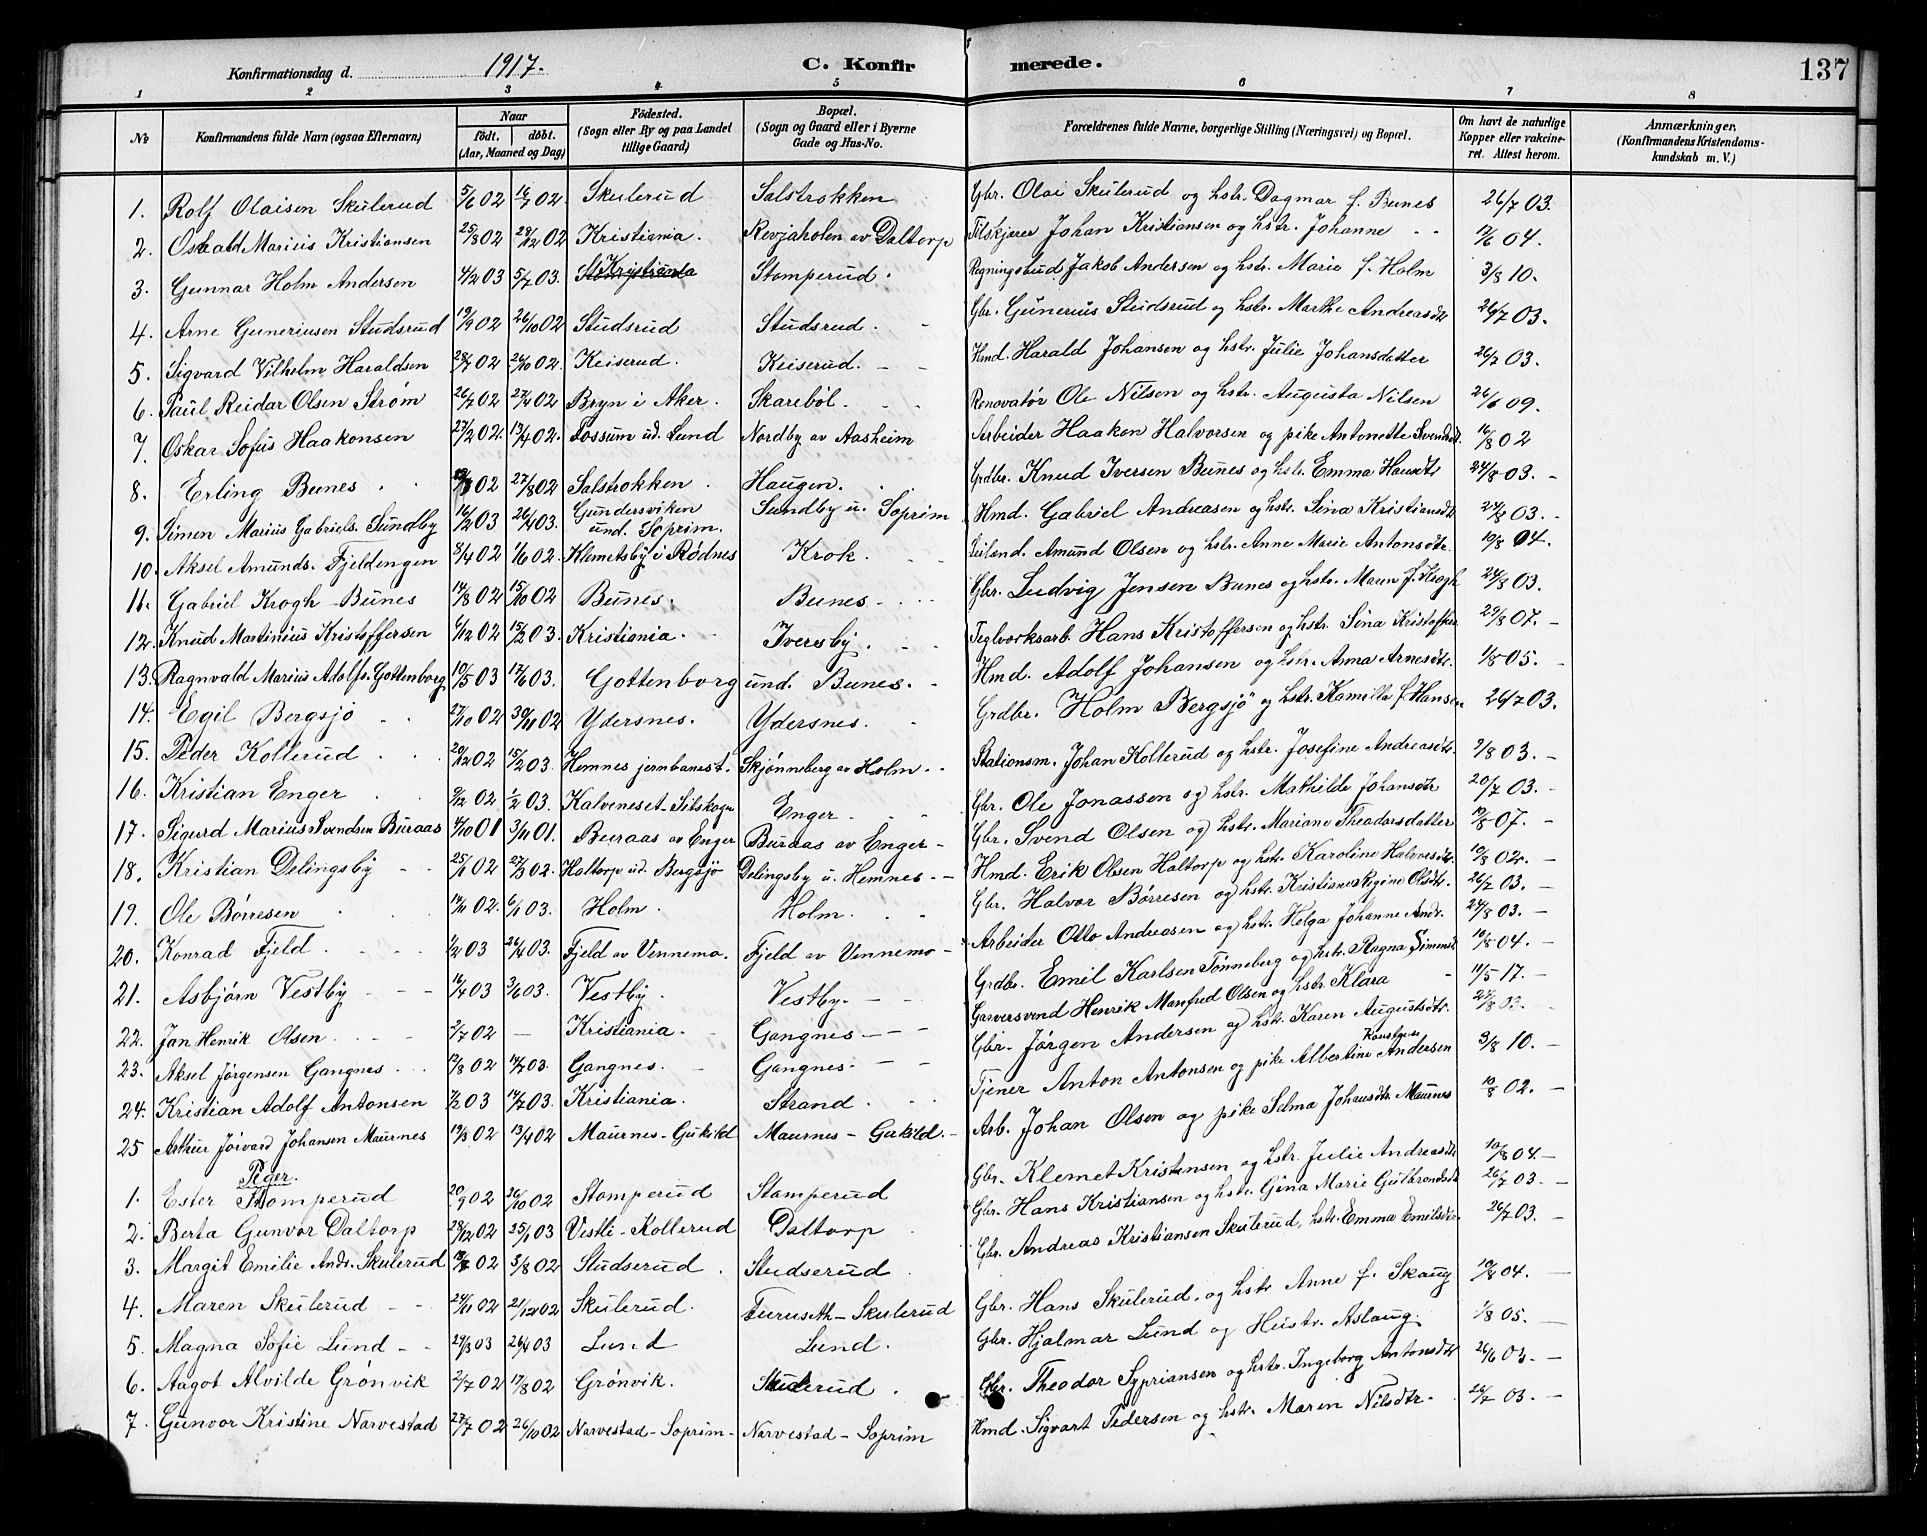 Konfirmationsdag d. 1917. C. Konfirmerede. 137
1 2 3 4 5 6 7 8
No Konfirmandens fulde Navn (ogsaa Efternavn) Naar født. døbt. (Aar, Maaned og Dag) Födested. (Sogn eller By og paa Landet tillige Gaard) Bopæl. (Sogn og Gaard eller i Byerne Gade og Hus-No. Forældrenes fulde Navne, borgerlige Stilling (Næringsvei) og Bopæl. Om havt de naturlige Kopper eller vakcineret. Attest herom. Anmærkninger. (Konfirmandens Kristendomskundskab m. V.)
1. Rolf Olaisen Skulerud 5/6 02 16/7 02 Skulerud Salstrokken Gbr. Olai Skulerud og hstr. Dagmar f. Bunes 26/7 03.
2. Osvald Marius Kristiansen 25/8 02 28/12 02 Kristiania. Revjaholen av Daltorp Johan Kristiansen og hstr. Johanne 04.
3. Gunnar Holm Andersen 4/2 03 5/7 03. Kristiania Stomperud. Regningsbud Jakob Andersen og hstr. Marie f. Holm 3/8 10.
4. Arne Guneriusen Studsrud 19/9 02 26/10 02 Studsrud Studsrud. Gbr. Gunerius Studsrud og hstr. Marthe Andreasdtr 26/7 03.
5. Sigvard Vilhelm Haraldsen 02 26/10 02. Keiserud. Keiserud. Hmd. Harald Johansen og hstr. Julie Johansdatter 26/7 03.
6. Paul Reidar Olsen Strøm 26/2 02 27/4 02 Bryn i Aker. Skareböl. Renovatör Ole Nilsen og hstr. Augusta Nilsen 26/6 09.
7. Oskar Sofus Haakonsen 27/2 02. 13/4 02. Fossum ud. Lund Nordby av Aasheim Arbeider Haakon Halvorsen og pike Antonette Svendsd. 16/8 02
8. Erling Bunes 02 27/8 02 Salstrokken. Haugen. Grdbr. Knud Iversen Bunes og hstr. Emma Hansdtr 24/8 03.
9. Simen Marius Gabriels. Sundby 16/2 03 26/4 03. Gundersviken und. Soprim. Sundby u. Soprim Hmd. Gabriel Andreasen og hstr. Sina Kristiansdtr 24/8 03.
10. Aksel Amunds. Fjeldengen 8/4 02 1/6 02. Klemetsby i Rödnes Krok. Leilænd. Amund Olsen og hstr. Anne Marie Antonsdtr. 10/8 04.
11. Gabriel Krogh Bunes 14/8 02 15/10 02 Bunes. Bunes Gbr. Ludvig Jensen Bunes og hstr. Maren f. Krogh 24/8 03.
12. Knud Martinius Kristoffersen 6/12 02 15/2 03. Kristiania. Iversby. Teglverksarb. Hans Kristoffersen og hstr. Sina Kristoffer 29/8 07.
13. Ragnvald Marius Adolfs. Gottenborg 10/5 03 17/6 03. Gottenborg und. Bunes. Hmd. Adolf Johansen og hstr. Anna Arnesdtr. 1/8 05.
14. Egil Bergsjö 27/10 02 30/11 02 Ydersnes. Ydersnes. Grdbr. Holm Bergsjö og hstr. Kamilla f. Hansen 26/7 03.
15. Peder Kollerud 20/12 02 15/2 03. Hemnes jernbanest. Skjønneberg av Holm. Stationsm. Johan Kollerud og hstr. Josefine Andreasdtr. 9/8 03.
16. Kristian Enger 9/12 02 1/2 03. Kalveneset-Sitskogen Enger Gbr. Ole Jonassen og hstr. Mathilde Johansdtr 20/7 03.
17. Sigurd Marius Svendsen Buraas 4/10 01 3/11 01. Buraas av Enger Buraas av Enger Gbr. Svend Olsen og hstr. Mariane Theodorsdatter 10/8 07.
18. Kristian Delingsby 25/1 02 27/3 02. Haltorp ud. Bergsjö Delingsby u. Hemnes. Hmd. Erik Olsen Haltorp og hstr. Karoline Halvorsdtr. 10/8 02.
19. Ole Börresen 14/11 02. 6/1 03. Holm. Holm. Gbr. Halvor Börresen og hstr. Kristiane Regine Olsdtr. 26/7 03.
20. Konrad Fjeld 1/2 03 26/4 03. Fjeld av Vennemo. Fjeld av Vennemo Arbeider Otto Andreasen og hstr. Helga Johanne Andr. 24/8 03.
21. Asbjörn Vestby 16/4 03 3/6 03. Vestby. Vestby. Grdbr. Emil Karlsen Tönneberg og hstr. Ragna Simensd. 10/8 04.
22. Jan Henrik Olsen 2/7 02 — Kristiania. Gangnes Garversvend Henrik Manfred Olsen og hstr. Klara 11/5 17.
23. Aksel Jörgensen Gangnes 02 03. Gangnes. Gangnes. Gbr. Jörgen Andersen og hstr. Karen Augustsdtr. 03.
24. Kristian Adolf Antonsen 03 03. Kristiania. Strand. Tjener Anton Antonsen og pike Albertine Andersen 3/8 10.
25 Arthur Jörvard Johansen Maurnes 19/3 02 13/4 02 Maurnes-Gukild Maurnes-Gukild. Arb. Johan Olsen og pike Selma Johansdtr Maurnes 10/8 02.
Piger.
1. Ester Stomperud 20/9 02 26/10 02 Stomperud Stomperud Gbr. Klemet Kristensen og hstr. Julie Andreasdtr 10/8 04.
2. Berta Gunvor Daltorp 28/12 02 25/1 03 Vestli-Kollerud Daltorp Gbr. Hans Kristiansen og hstr. Gina Marie Gulbrandsdtr 26/7 03.
3. Margit Emilie Andr. Skulerud 02 3/8 02 Studserud. Studserud Gbr. Andreas Kristiansen Skulerud, hstr. Emma Emilsdtr. 26/7 03.
4. Maren Skulerud 24/11 02 21/12 02 Skulerud. Furuseth-Skulerud Gbr. Hans Skulerud, og hstr Anne f. Skaug 10/8 04.
5. Magna Sofie Lund 27/3 03 26/4 03 Lund Lund. Gbr. Hjalmar Lund og Hustr. Aslaug. 1/8 05.
6. Aagot Alvilde Grönvik 2/7 02 17/8 02 Grönvik. Skulerud. Gbr. Theodor Sypriansen og hstr. Ingeborg Antonsdtr 26/6 03.
7. Gunvor Kristine Narvestad 27/7 02 26/10 02 Narvestad-Soprim Narvestad-Soprim Hmd. Sigvart Pedersen og hstr. Maren Nilsdtr. 26/7 03.